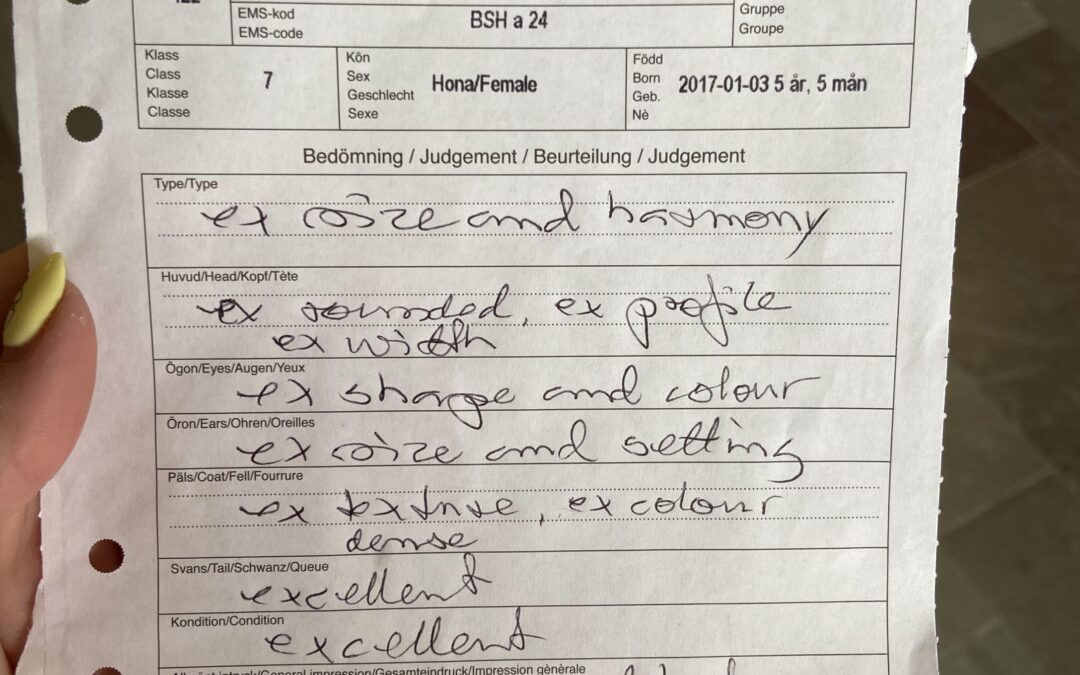 EMS-kod
EMS-code
BSH a 24
Gruppe
Groupe
Klass
Class
Klasse
Classe
7
Kön
Sex
Geschlecht
Sexe
Hona/Female
Född
Born
Geb.
Nè
2017-01-03 5 år, 5 mån
Bedömning / Judgement / Beurteilung / Judgement
Type/Type
ex size and harmony
Huvud/Head/Kopf/Tète
ex rounded, ex profile
ex width
Ögon/Eyes/Augen/Yeux
ex shape and colour
Öron/Ears/Ohren/Oreilles
ex size and setting
Päls/Coat/Fell/Fourrure
ex texture, ex colour
dense
Svans/Tail/Schwanz/Queue
excellent
Kondition/Condition
excellent
intryck/General impression/Gesamteindruck/Impression gènèrale